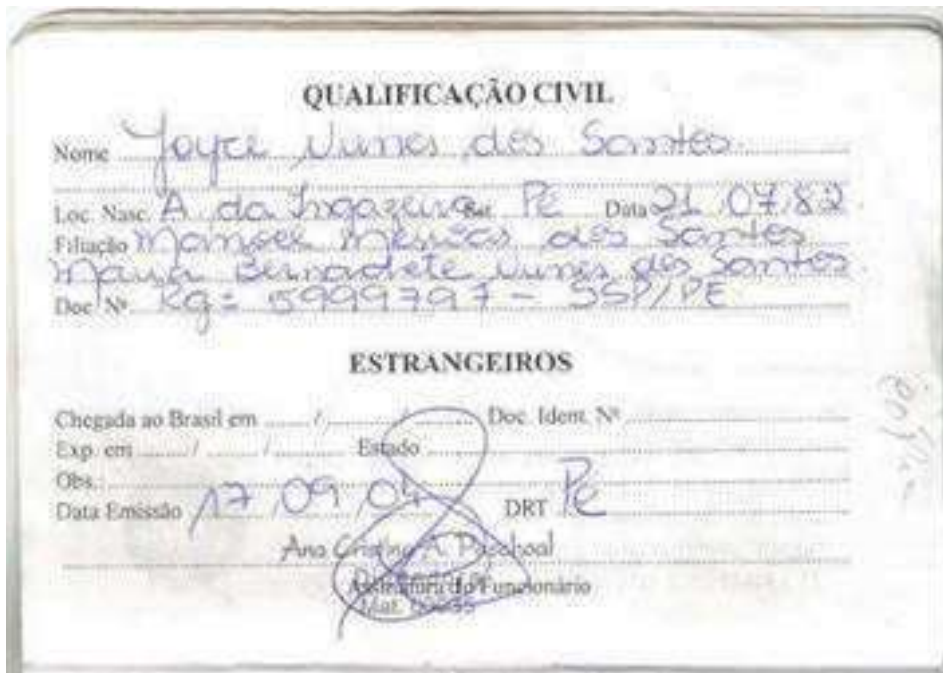 QUALIFICAÇÃO CIVIL
Nome Joyce Nunes dos Santos.
Loc. Nasc. A. da Ingazeira Est. PE Data 21.07.82
Filiação Manoel Messias dos Santos
Maria Bernadete Nunes dos Santos.
Doc. Nº Rg = 5999797 - SSP/PE
ESTRANGEIROS
Chegada ao Brasil em / / Doc. Ident. Nº
Exp. em / / Estado
Obs.:
Data Emissão 17/09/04 DRT PE
Ana Cristina A. Paschoal
Assinatura do Funcionário
Mat.